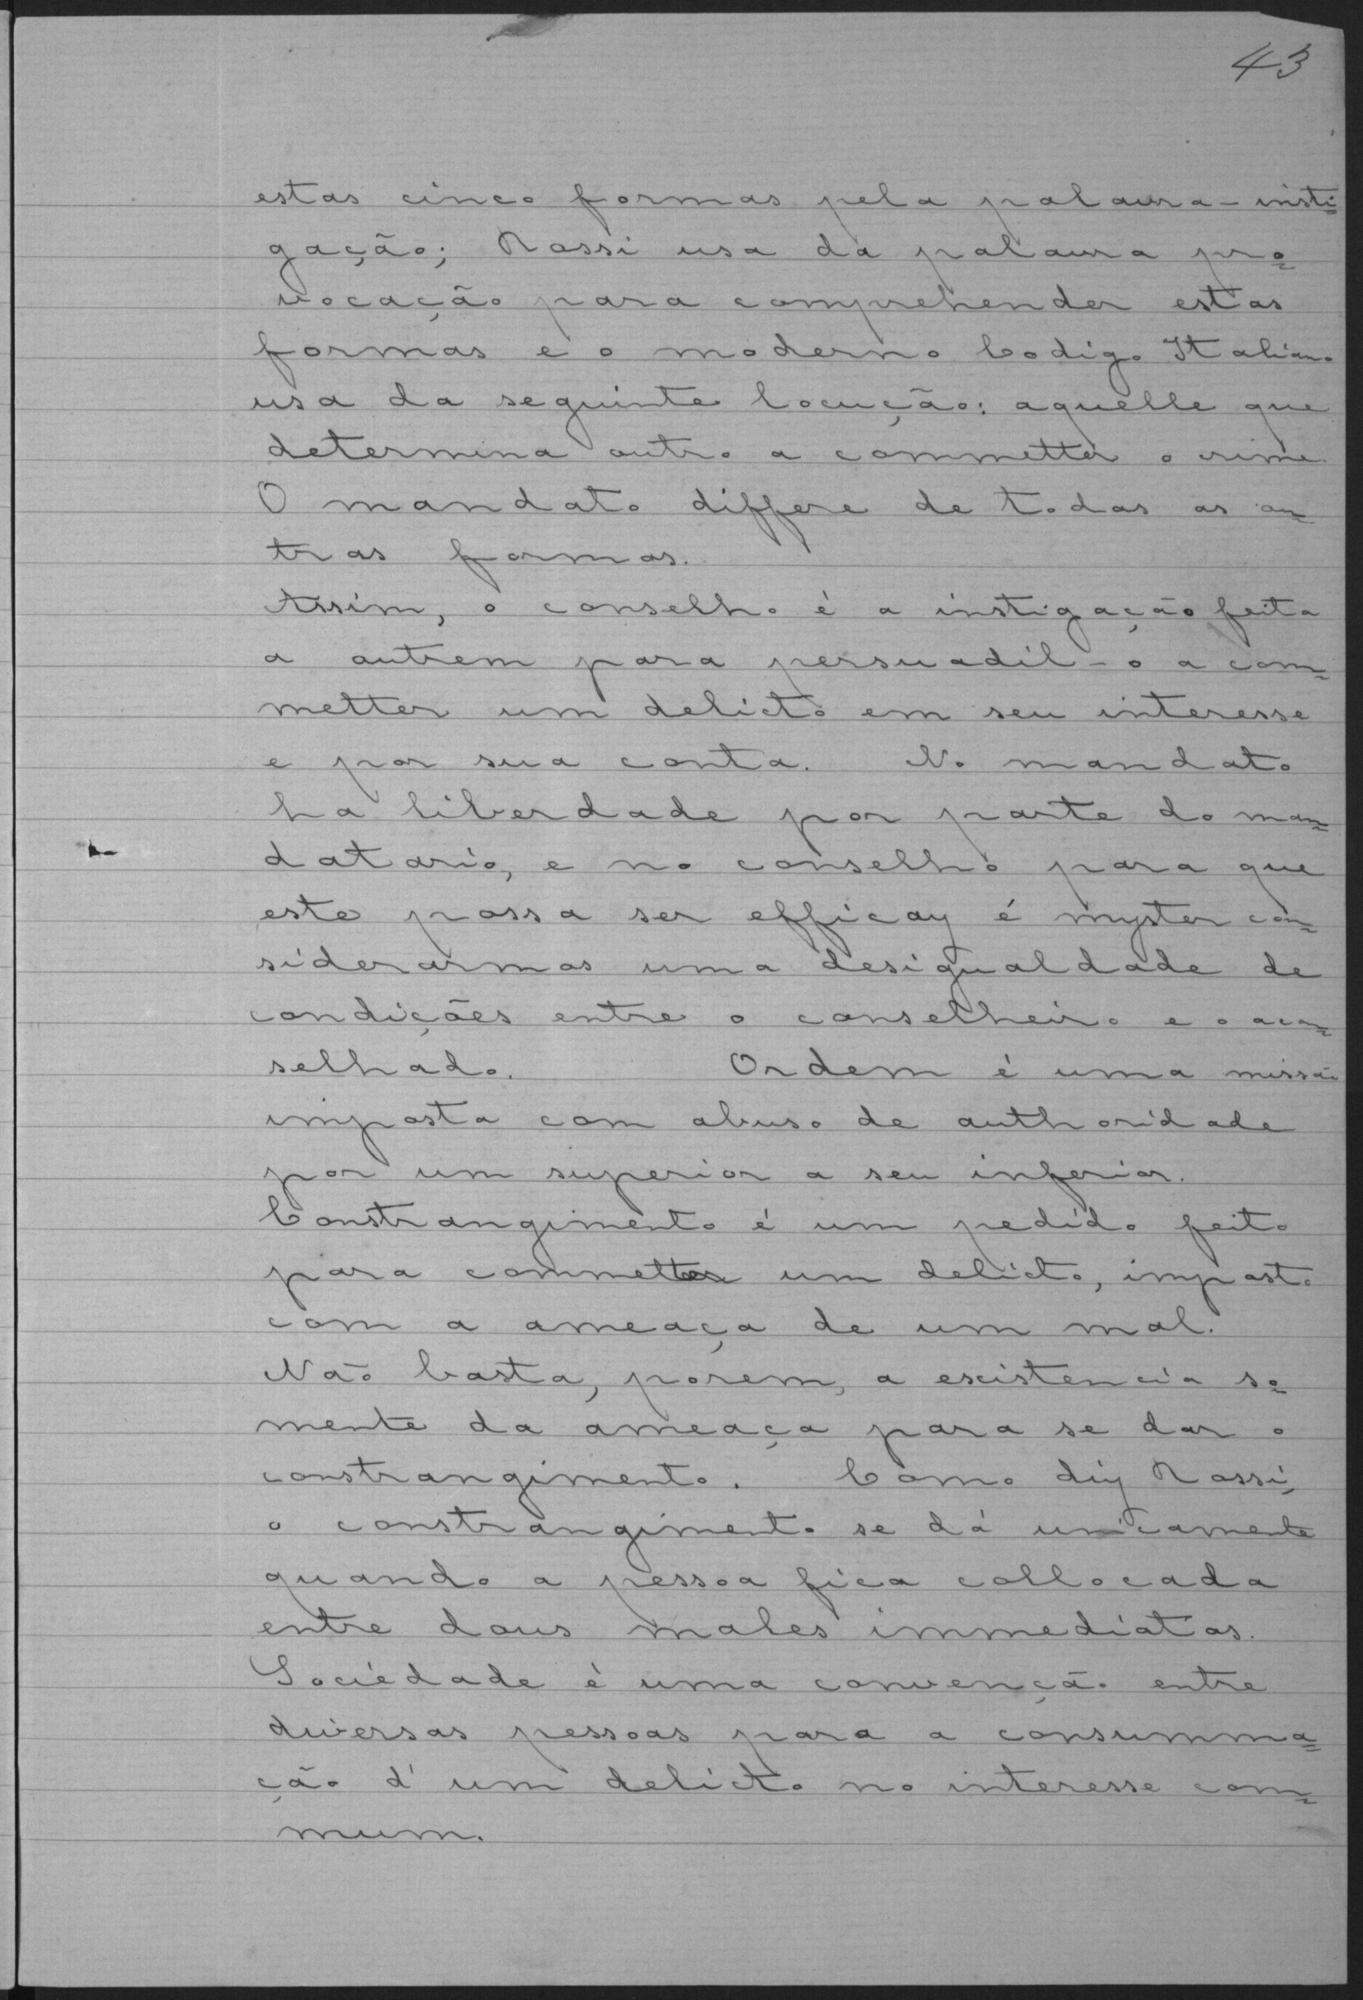 43
estas cinco formas pela palavra - insti=
gação; Rossi usa da palavra pro=
vocação para comprehender estas
formas e o moderno Codigo Italiano
usa da seguinte locução: aquelle que
determina outro a commetter o crime.
O mandato differe de todas as ou=
tras formas.
Assim, o conselho é a instigação feita
a outrem para persuadil-o a com=
metter um delicto em seu interesse
e por sua conta. No mandato
ha liberdade por parte do man=
datario, e no conselho para que
este possa ser efficaz é myster con=
siderarmos uma desigualdade de
condições entre o conselheiro e o acon=
selhado. Ordem é uma missão
imposta com abuso de authoridade
por um superior a seu inferior.
Constrangimento é um pedido feito
para commetter um delicto, imposto
com a ameaça de um mal.
Não basta, porem, a existencia so=
mente da ameaça para se dar o
constrangimento. Como diz Rossi,
o constrangimento se dá unicamente
quando a pessoa fica collocada
entre dous males immediatos.
Sociedade é uma convenção entre
diversas pessoas para a consumma=
ção d'um delicto no interesse com=
mum.